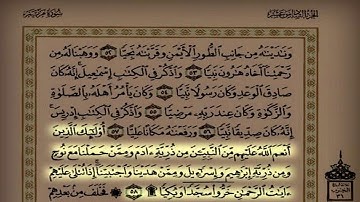 سورة مريم
الجزء السادس عشر
وَنَٰدَيْنَٰهُ مِن جَانِبِ ٱلطُّورِ ٱلْأَيْمَنِ وَقَرَّبْنَٰهُ نَجِيًّا ٥٢ وَوَهَبْنَا لَهُۥ مِن
رَّحْمَتِنَآ أَخَاهُ هَٰرُونَ نَبِيًّا ٥٣ وَٱذْكُرْ فِى ٱلْكِتَٰبِ إِسْمَٰعِيلَ إِنَّهُۥ كَانَ
صَادِقَ ٱلْوَعْدِ وَكَانَ رَسُولًا نَّبِيًّا ٥٤ وَكَانَ يَأْمُرُ أَهْلَهُۥ بِٱلصَّلَوٰةِ
وَٱلزَّكَوٰةِ وَكَانَ عِندَ رَبِّهِۦ مَرْضِيًّا ٥٥ وَٱذْكُرْ فِى ٱلْكِتَٰبِ إِدْرِيسَ إِنَّهُۥ
كَانَ صِدِّيقًا نَّبِيًّا ٥٦ وَرَفَعْنَٰهُ مَكَانًا عَلِيًّا ٥٧ أُو۟لَٰٓئِكَ ٱلَّذِينَ
أَنْعَمَ ٱللَّهُ عَلَيْهِم مِّنَ ٱلنَّبِيِّۦنَ مِن ذُرِّيَّةِ ءَادَمَ وَمِمَّنْ حَمَلْنَا مَعَ نُوحٍ
وَمِن ذُرِّيَّةِ إِبْرَٰهِيمَ وَإِسْرَٰٓءِيلَ وَمِمَّنْ هَدَيْنَا وَٱجْتَبَيْنَآ إِذَا تُتْلَىٰ عَلَيْهِمْ
ءَايَٰتُ ٱلرَّحْمَٰنِ خَرُّوا۟ سُجَّدًا وَبُكِيًّا ٥٨ فَخَلَفَ مِنۢ بَعْدِهِمْ